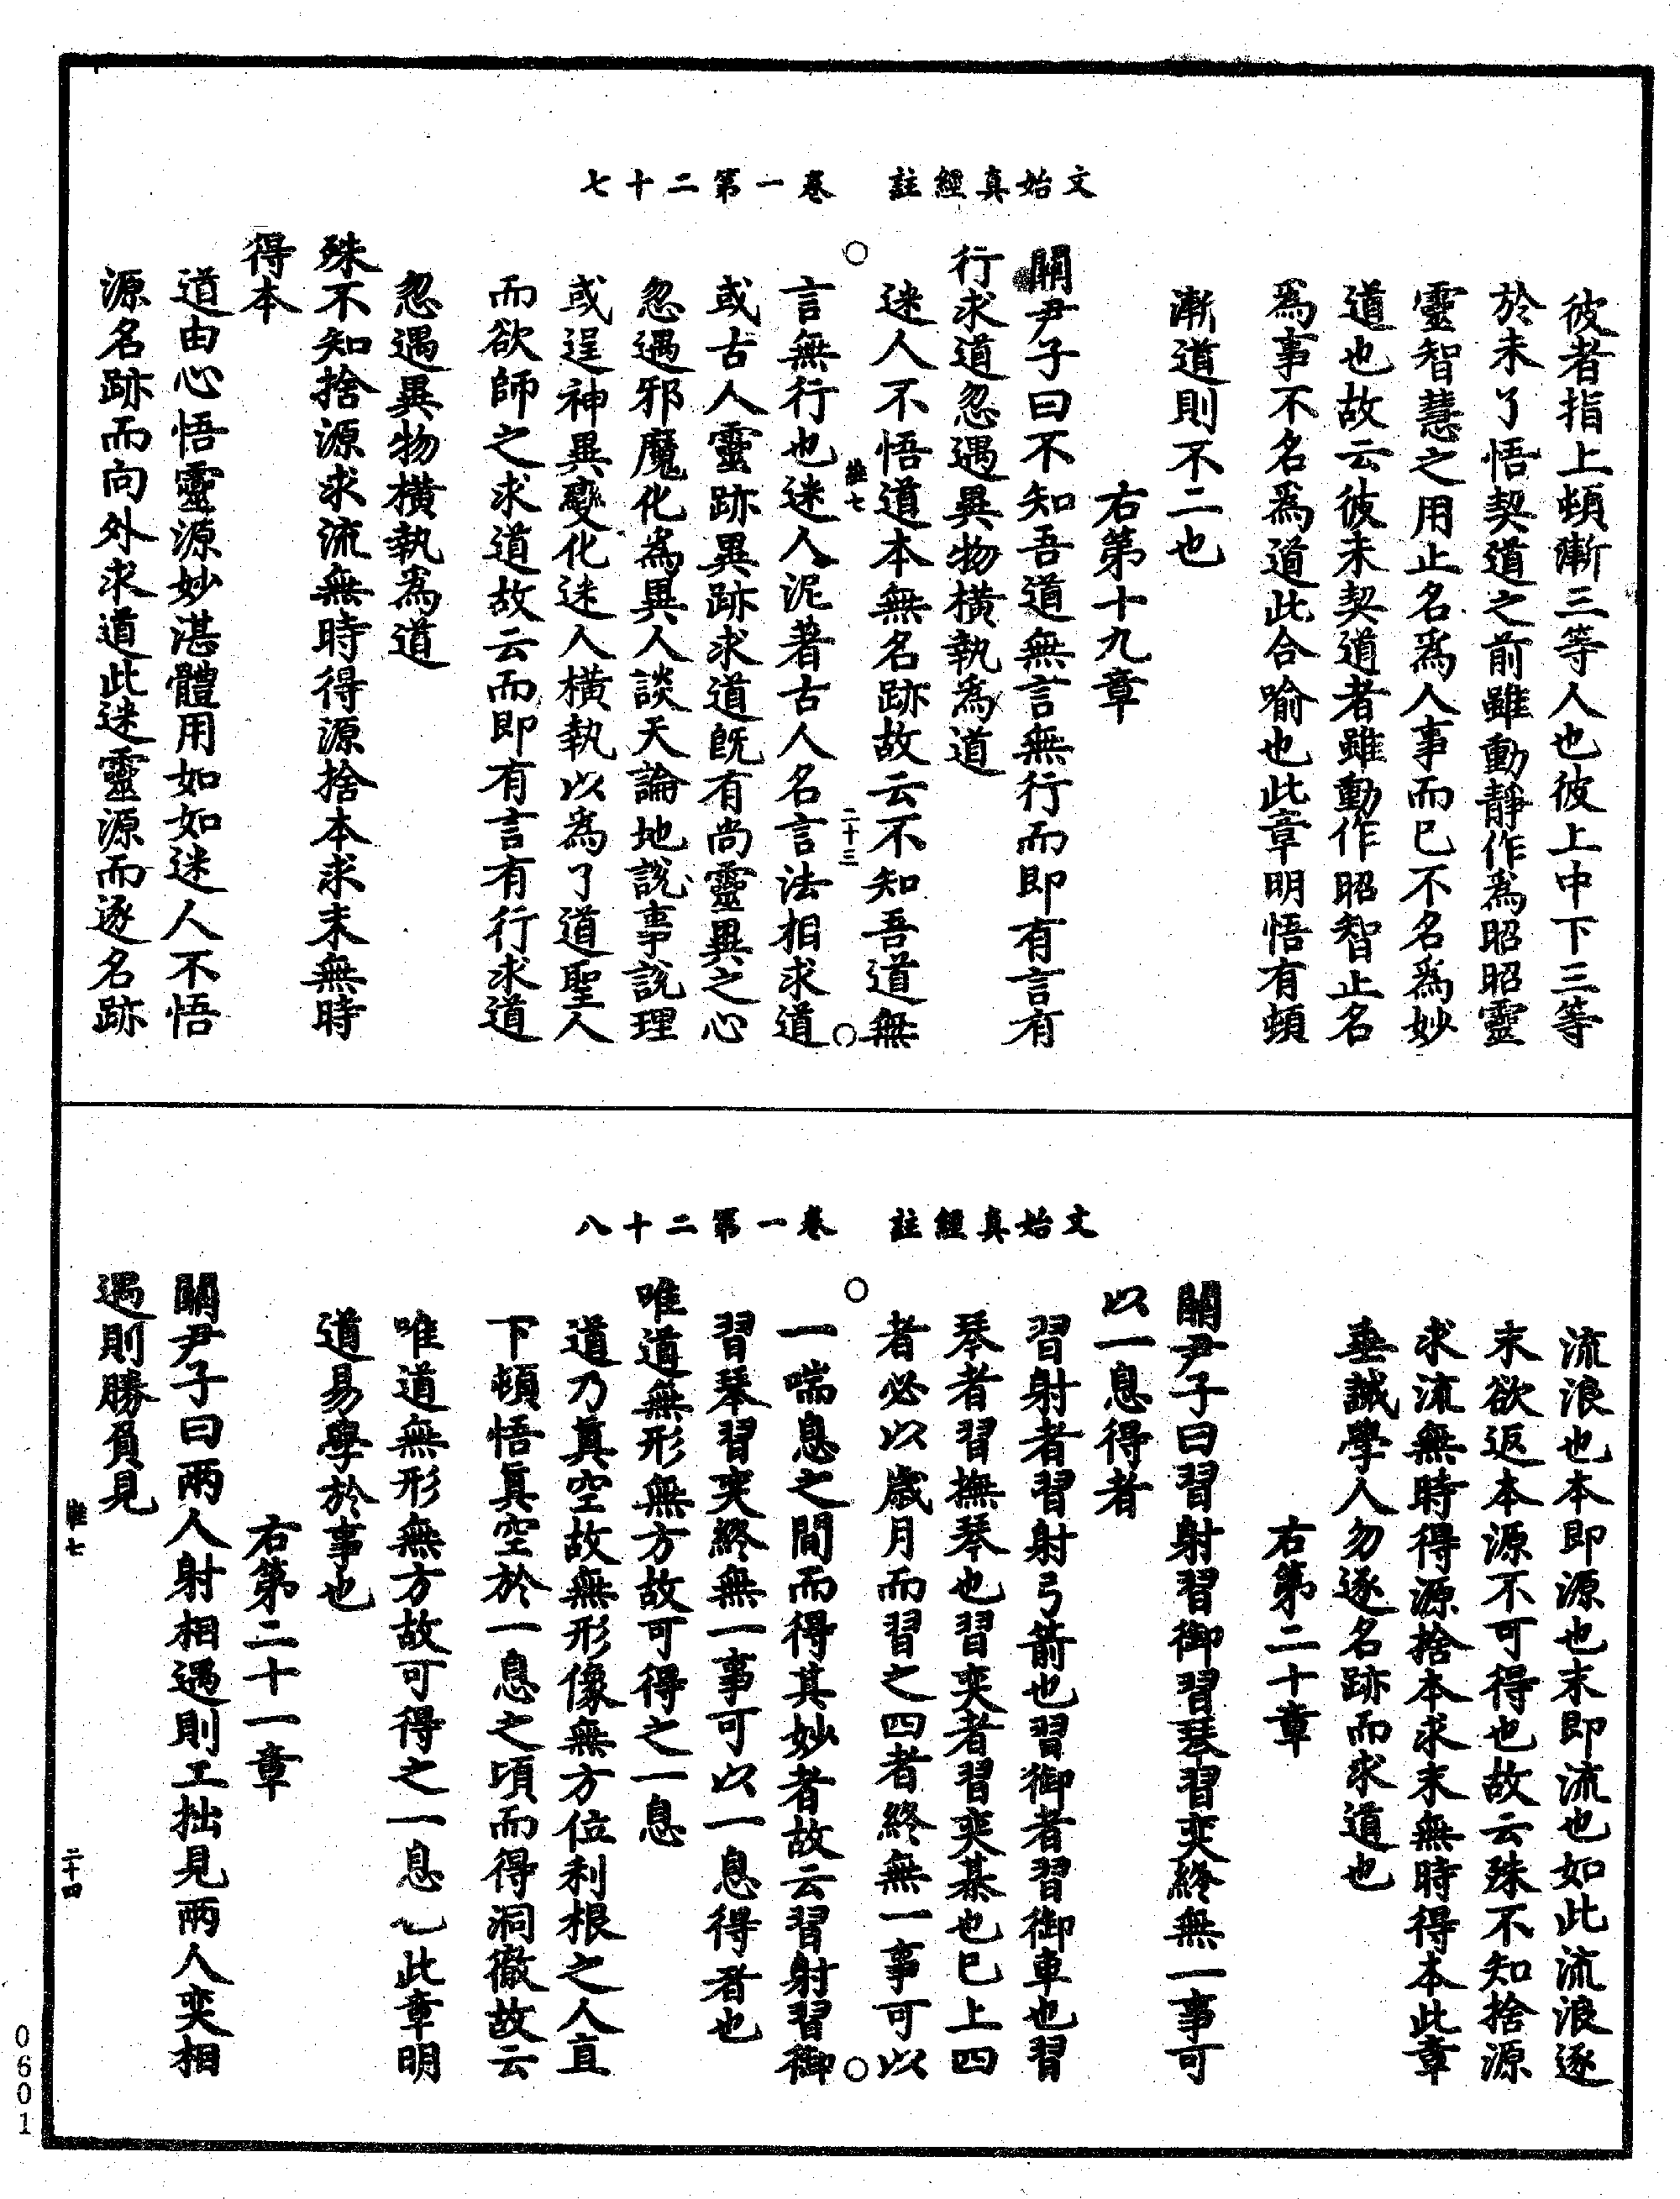 文始真經註　卷一第二十七
彼者指上頓漸三等人也彼上中下三等
於未了悟契道之前雖動靜作爲昭昭靈
靈智慧之用止名爲人事而已不名爲妙
道也故云彼未契道者雖動作昭智止名
爲事不名爲道此合喻也此章明悟有頓
漸道則不二也
右第十九章
關尹子曰不知吾道無言無行而即有言有
行求道忽遇異物橫執爲道
迷人不悟道本無名跡故云不知吾道無
維七　二十三
言無行也迷人泥著古人名言法相求道
或古人靈跡異跡求道旣有尚靈異之心
忽遇邪魔化爲異人談天論地說事說理
或逞神異變化迷人橫執以爲了道聖人
而欲師之求道故云而即有言有行求道
忽遇異物橫執爲道
殊不知捨源求流無時得源捨本求末無時
得本
道由心悟靈源妙湛體用如如迷人不悟
源名跡而向外求道此迷靈源而逐名跡
文始真經註　卷一第二十八
流浪也本即源也末即流也如此流浪逐
末欲返本源不可得也故云殊不知捨源
求流無時得源捨本求末無時得本此章
垂誡學人勿逐名跡而求道也
右第二十章
關尹子曰習射習御習琴習奕終無一事可
以一息得者
習射者習射弓箭也習御者習御車也習
琴者習撫琴也習奕者習奕棊也已上四
者必以歲月而習之四者終無一事可以
一喘息之間而得其妙者故云習射習御
習琴習奕終無一事可以一息得者也
唯道無形無方故可得之一息
道乃眞空故無形像無方位利根之人直
下頓悟眞空於一息之頃而得洞徹故云
唯道無形無方故可得之一息也此章明
道易學於事也
右第二十一章
關尹子曰兩人射相遇則工拙見兩人奕相
遇則勝負見
維七　二十四
0601